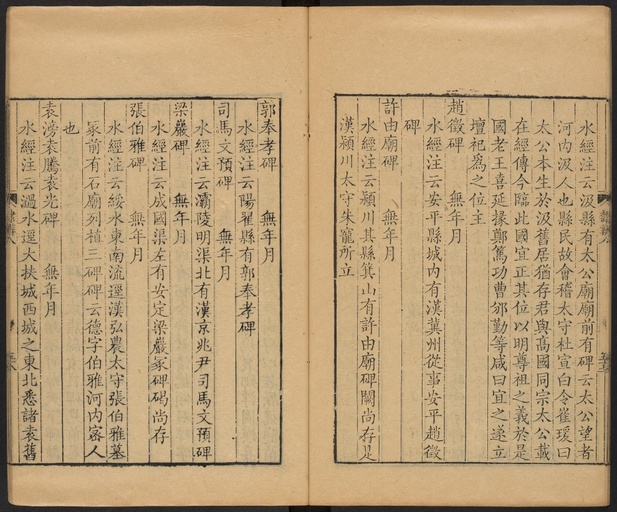 水經注云汲縣有太公廟廟前有碑云太公望者
河內汲人也縣民故會稽太守杜宣白令崔瑗曰
太公本生於汲舊居猶存君與高國同宗太公載
在經傳今臨此國宜正其位以明尊祖之義於是
國老王喜延掾鄭篤功曹邠勤等咸曰宜之遂立
壇祀爲之位主
趙徵碑 無年月
水經注云安平縣城內有漢冀州從事安平趙徵
碑
許由廟碑 無年月
水經注云潁川其縣箕山有許由廟碑闕尚存是
漢潁川太守朱寵所立
郭奉孝碑 無年月
水經注云陽翟縣有郭奉孝碑
司馬文預碑 無年月
水經注云灞陵明渠北有漢京兆尹司馬文預碑
梁嚴碑 無年月
水經注云成國渠左有安定梁嚴冢碑碣尚存
張伯雅碑 無年月
水經注云綏水東南流逕漢弘農太守張伯雅墓
冢前有石廟列植三碑碑云德字伯雅河內密人
也
袁滂袁騰袁光碑 無年月
水經注云渦水逕大扶城西城之東北悉諸袁舊